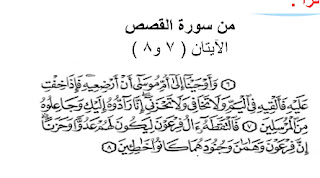 من سورة القصص
الآيتان ( ٧ و٨ )
۞ وَأَوْحَيْنَا إِلَىٰ أُمِّ مُوسَىٰ أَنْ أَرْضِعِيهِ فَإِذَا خِفْتِ
عَلَيْهِ فَأَلْقِيهِ فِي الْيَمِّ وَلَا تَخَافِي وَلَا تَحْزَنِي إِنَّا رَادُّوهُ إِلَيْكِ وَجَاعِلُوهُ
مِنَ الْمُرْسَلِينَ ٧ فَالْتَقَطَهُ آلُ فِرْعَوْنَ لِيَكُونَ لَهُمْ عَدُوًّا وَحَزَنًا
إِنَّ فِرْعَوْنَ وَهَامَانَ وَجُنُودَهُمَا كَانُوا خَاطِئِينَ ٨